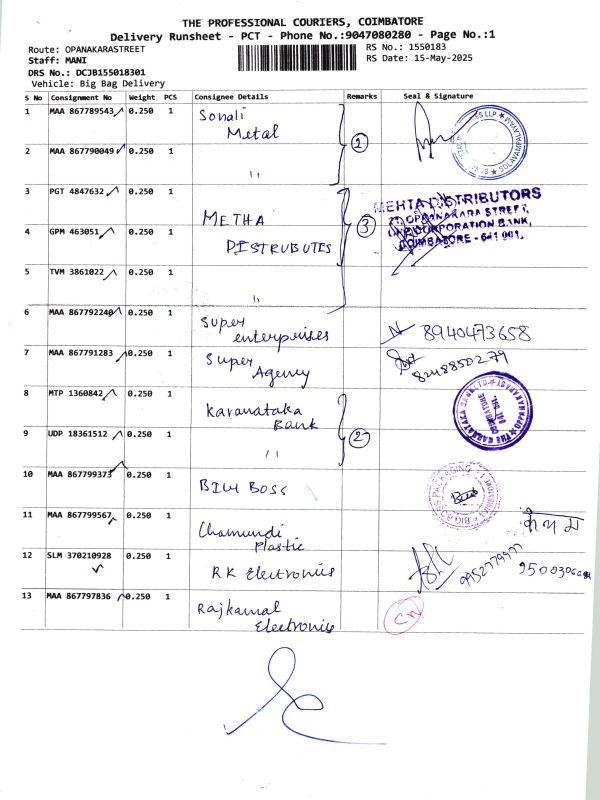 THE PROFESSIONAL COURIERS, COIMBATORE
Delivery Runsheet - PCT - Phone No.:9047080280 - Page No.:1
Route: OPANAKARASTREET
RS No.: 1550183
Staff: MANI
RS Date: 15-May-2025
DRS No.: DCJB155018301
Vehicle: Big Bag Delivery
S No Consignment No Weight PCS Consignee Details Remarks Seal & Signature
1 MAA 867789543 0.250 1 Sonali Metal
2 MAA 790049 0.250 1 " 2
3 PGT 4847632 0.250 1 METHA
4 GPM 463051 0.250 1 DISTRUBUTES 3
MEHTA DISTRIBUTORS
OPPANAKARA STREET,
CORPORATION BANK,
COIMBATORE - 641 001.
5 TVM 3861022 0.250 1 "
6 MAA 867792240 0.250 1 Super enterprises 8940473658
7 MAA 867791283 0.250 1 Super Agency 8248850279
8 MTP 1360842 0.250 1 Karanataka Bank
9 UDP 18361512 0.250 1 " 2
10 MAA 867799373 0.250 1 BILL BOSS
11 MAA 867799567 0.250 1 Chamundi Plastic
12 SLM 370210928 0.250 1 RK Electronics 9952779977
13 MAA 867797836 0.250 1 Rajkamal Electronics